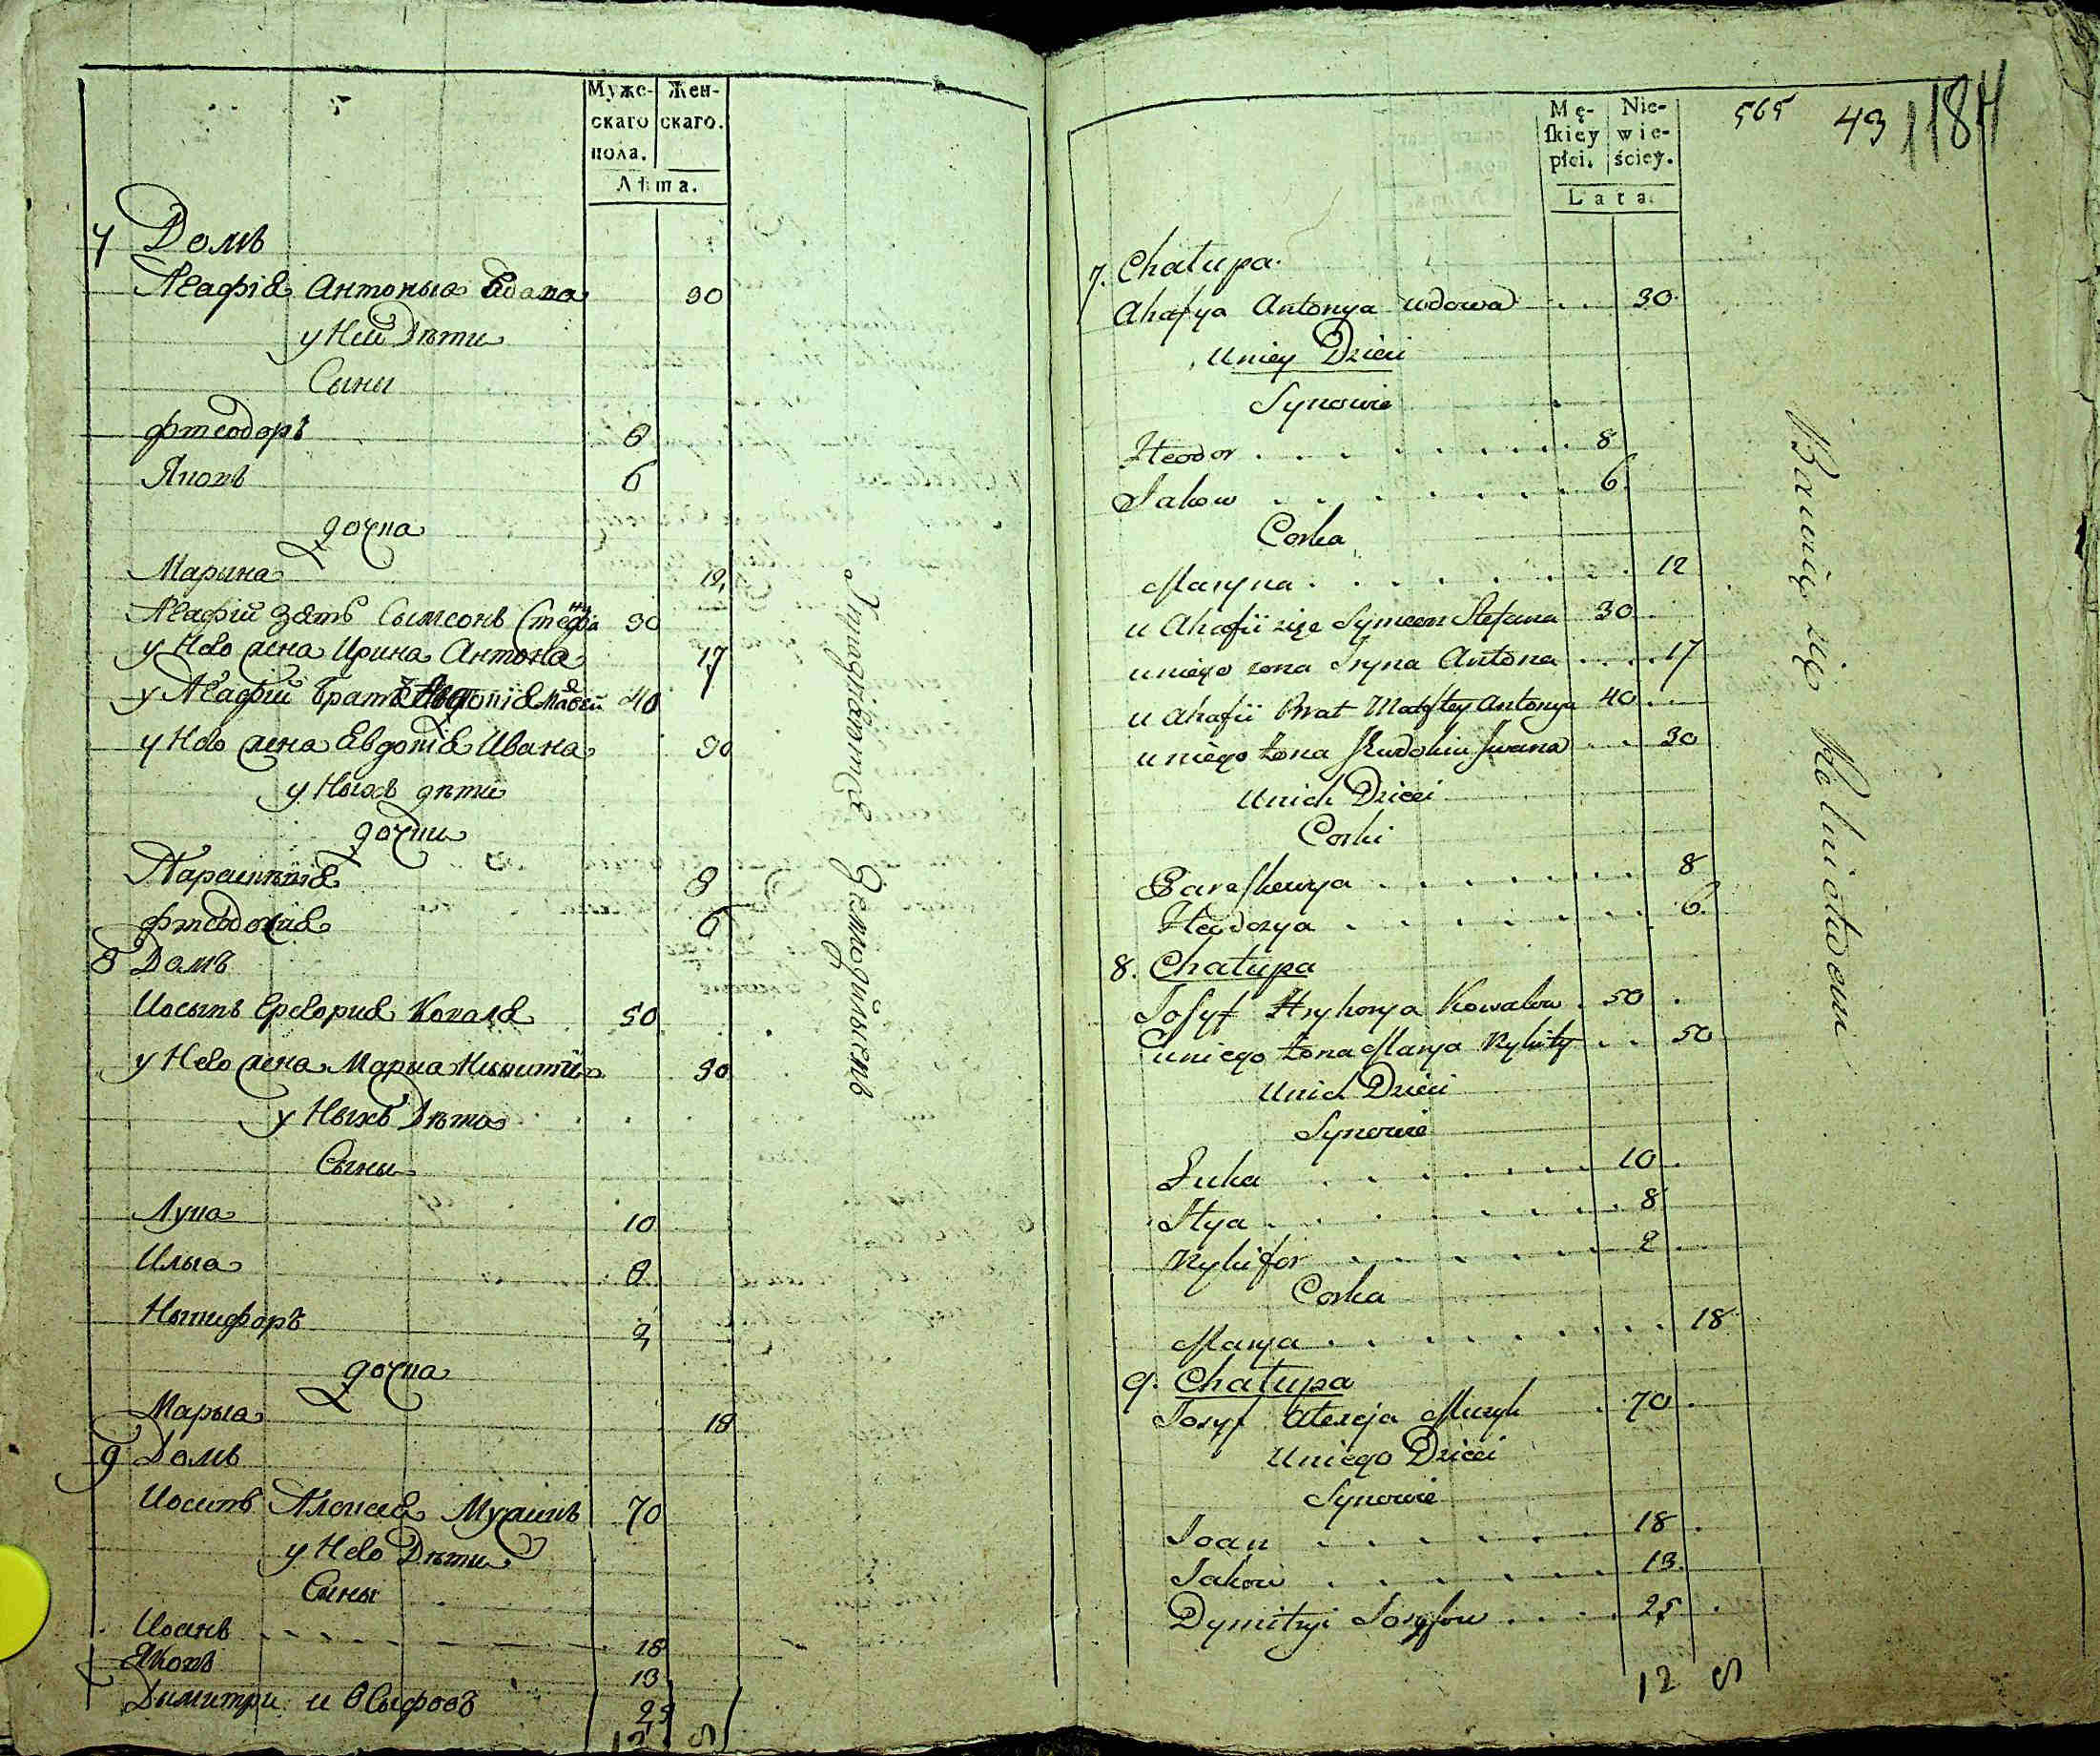 Муже-
скаго
пола.
Жен-
скаго.
Лѣта.
7 Домъ
Агафія Антоныа вдова 30
у Ней Дѣти
Сыны
Фтеодоръ 8
Яковъ 6
дочка
Марина 12
Агафій зять Сымеонъ Стефана 30
у Него жена Ирина Антона 17
у Агафій братъ 40
у Него жена Евдокія Ивана 30
у Ныхъ дѣти
дочки
Параскевія 8
Фтеодозія 6
8 Домъ
Иосыпъ Григория Коваля 50
у Него жена Мариа Никити 50
у Ныхъ Дѣти
Сыны
Лука 10
Илыа 8
Никифоръ 2
дочка
Марыа 18
9 Домъ
Иосипъ Алексея Мужикъ 70
у Него Дѣти
Сыны
Иоанъ 18
Яковъ 13
Димитри и Осыфовъ 25
12 8
565 43 184
Mę-
skiey
płci.
Nie-
wie-
ściey.
Lata.
7. Chałupa.
Ahafya Antonya wdowa 30
u niey Dzieci
Synowie
Fteodor 8
Jakow 6
Corka
Maryna 12
u Ahafii zięć Symeon Stefana 30
u niego żona Iryna Antona 17
u Ahafii Brat Matftey Antonya 40
u niego żona Ewdokia Iwana 30
u nich Dzieci
Corki
Paraskewya 8
Fteodozya 6
8. Chałupa
Josyf Hryhorya Kowalow 50
u niego żona Marya Nykity 50
u nich Dzieci
Synowie
Łuka 10
Ilya 8
Nykifor 2
Corka
Marya 18
9. Chałupa
Josyf Alexeja Muzyk 70
u niego Dzieci
Synowie
Joan 18
Jakow 13
Dymitryi Josyfow 25
12 8
Bawią się Rolnictwem